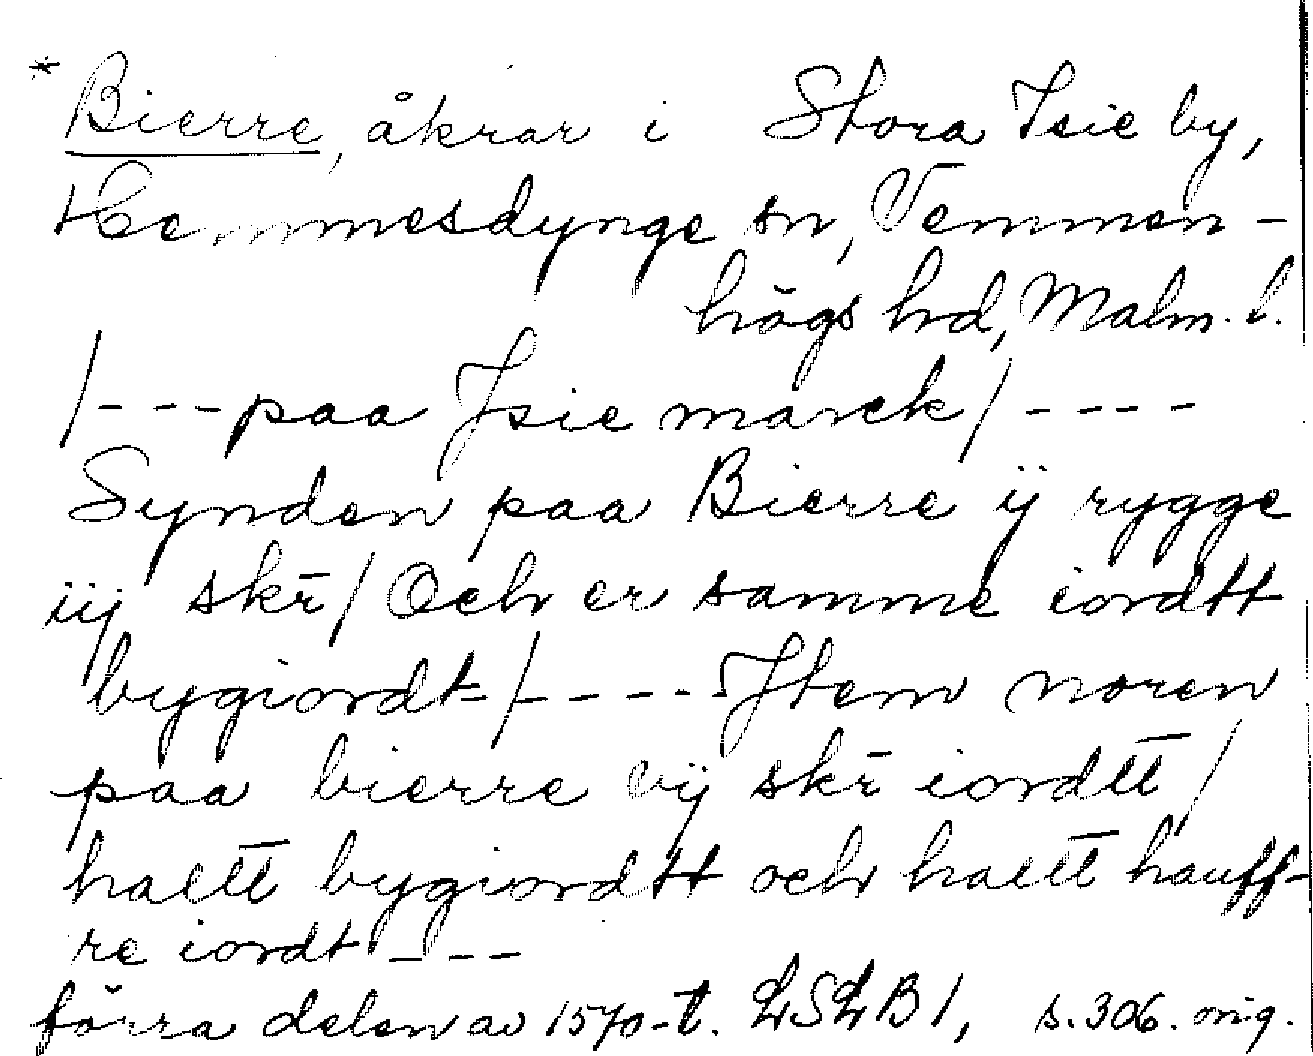 * Bierre, åkrar i Stora Isie by,
Hemmesdynge sn, Vemmen-
högs hd, Malm. l.
/---paa Jsie marck/----
Synden paa Bierre ij rygge
iij skr/ Och er samme iordtt
bygiordt/-----Jtem noren
paa bierre vij skr iordtt/
haltt bygiordtt och haltt hauff-
re iordt---
förra delen av 1570-t. LSLB1, s. 306. orig.